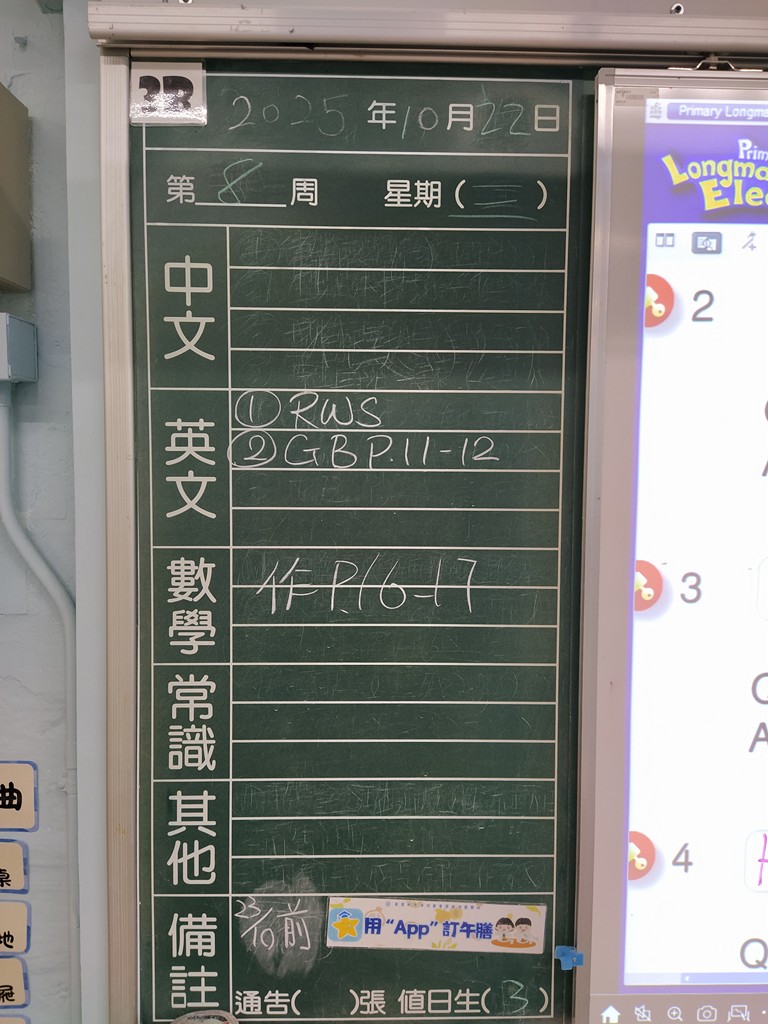 3B
2025年10月22日
第8周 星期(三)
中文
英文
①RWS
②GB P.11-12
數學
作 P.16-17
常識
其他
備註
23/10前
用“App”訂午膳
通告( )張 值日生(3)
Primary Longma
Prim
Longma
Elec
2
3
4
Q
A
Q
曲
桌
地